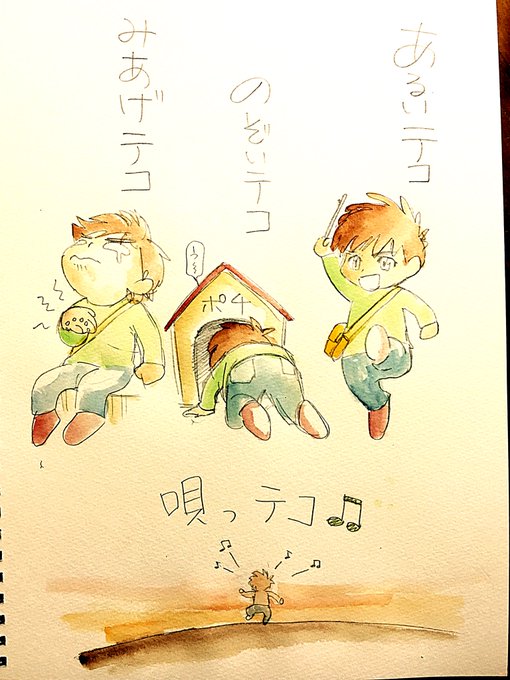 あるいテコ
のぞいテコ
みあげテコ
ポチ
唄っテコ♫